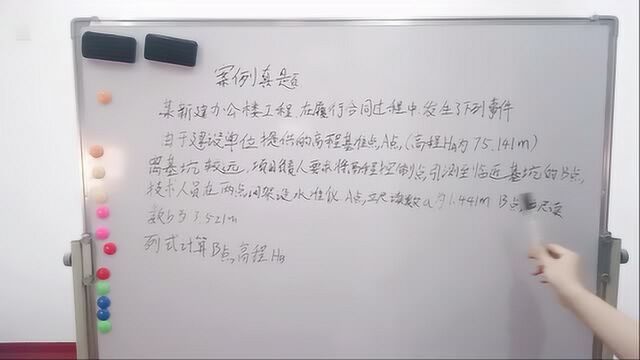 案例真题
某新建办公楼工程，在履行合同过程中，发生了下列事件
由于建设单位提供的高程基准点A点，(高程HA为75.141m)
离基坑较远，项目技术负责人要求将高程控制点引测至临近基坑的B点，
技术人员在两点间架设水准仪A点立尺读数a为1.441m B点立尺读
数b为3.521m
列式计算B点高程HB